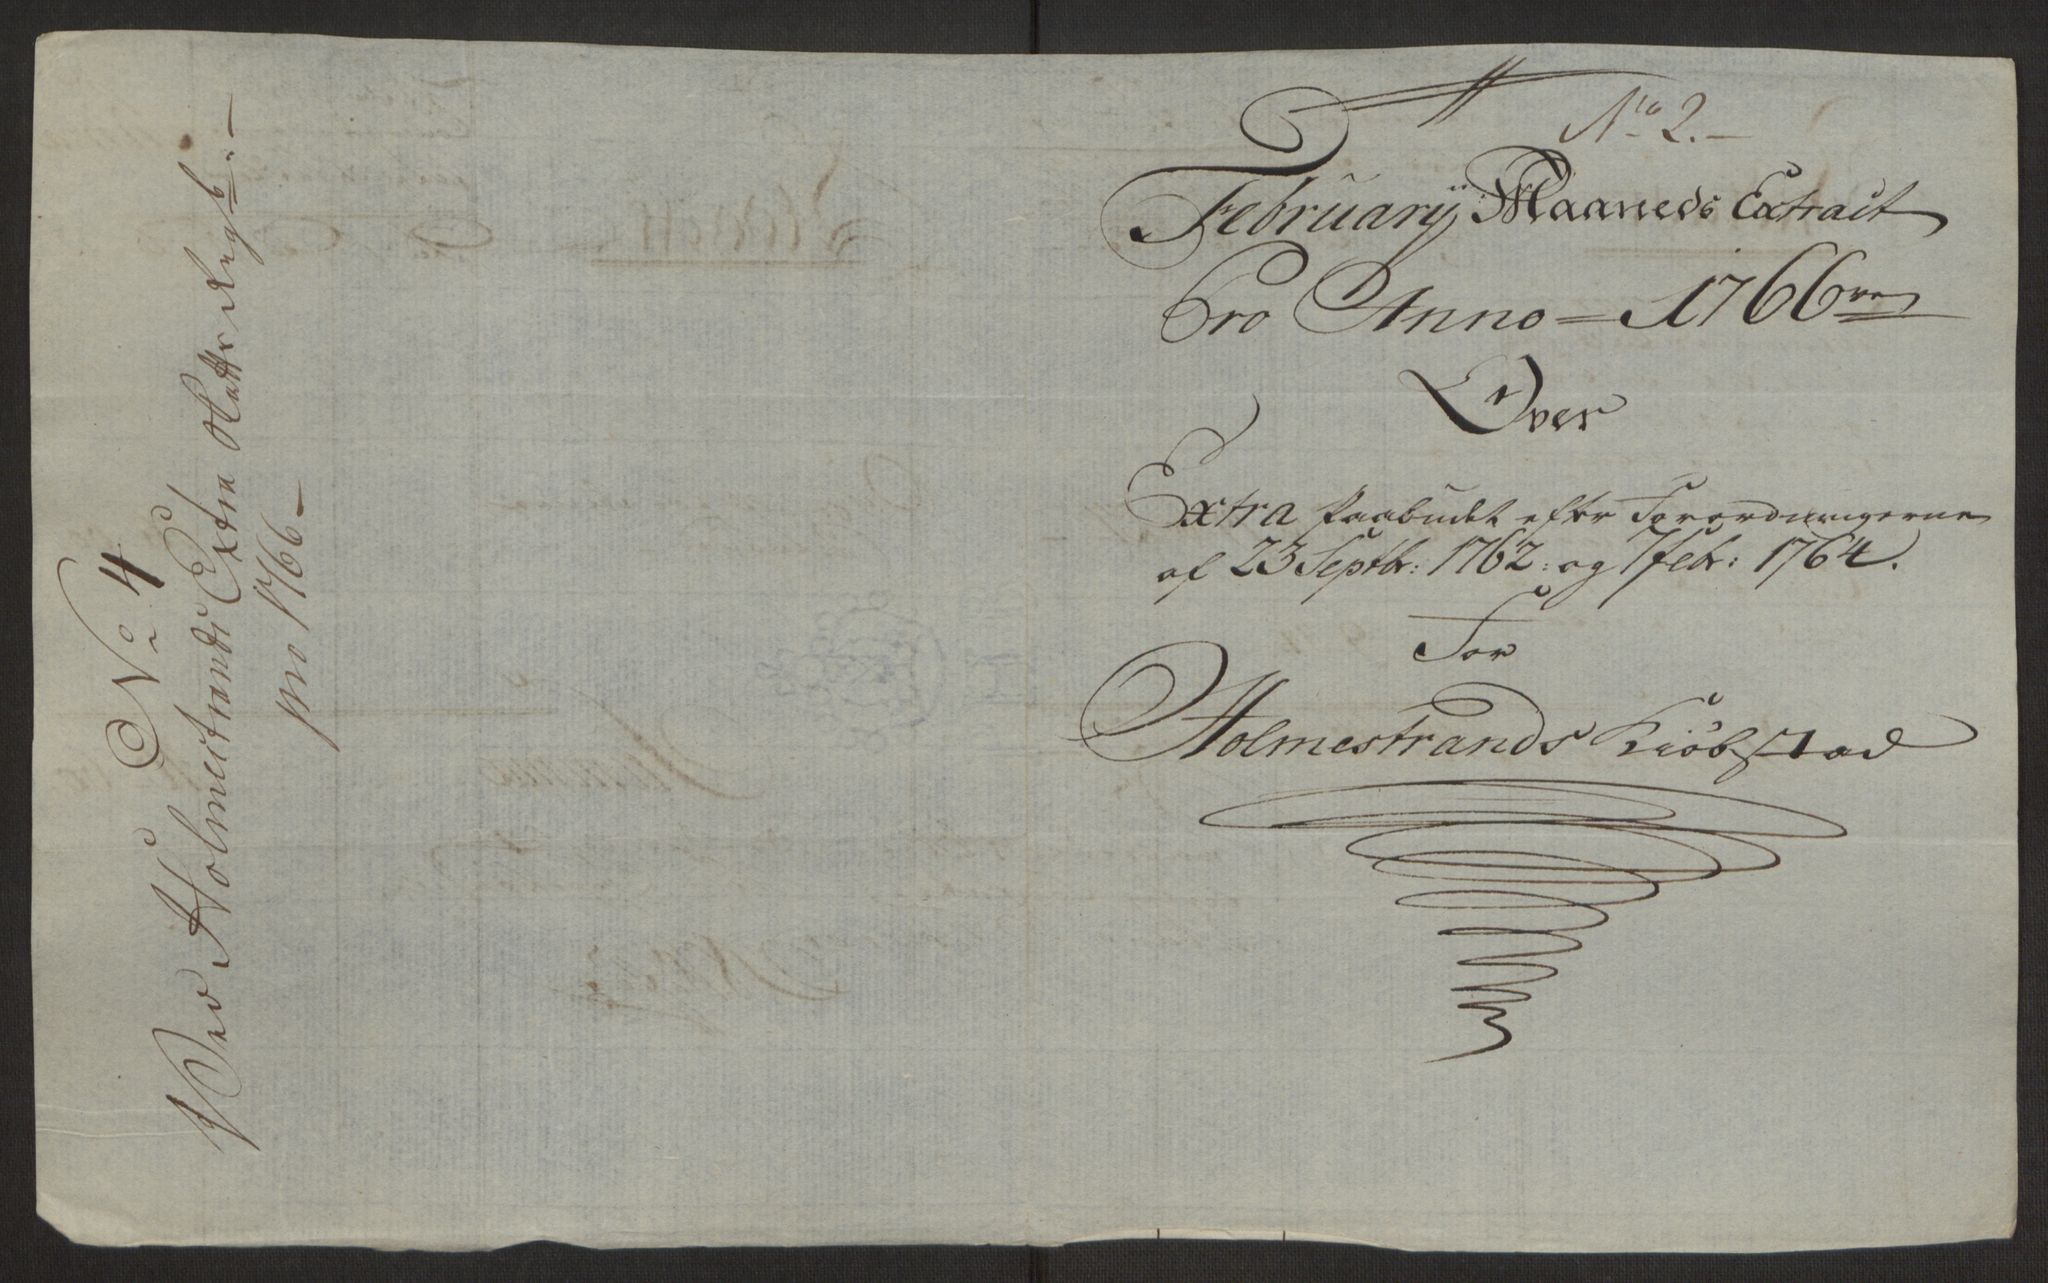 No 4
Ved Holmestrands Extra Skatte Regsk:
pro 1766
No 2.
February Maaneds Extract
Pro Anno = 1766
Over
Extra Paabudet efter Forordningerne
af 23 Septbr: 1762: og 7 Febr: 1764.
For
Holmestrands Kiöbstad